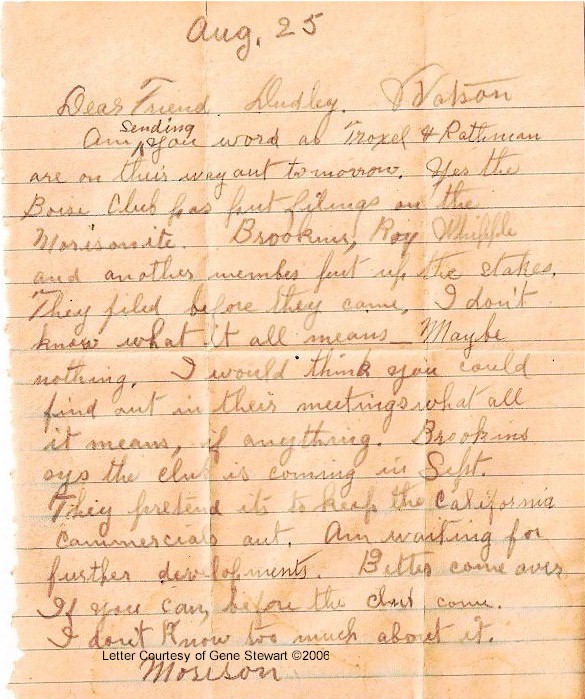 Aug. 25
Dear Friend Dudley. Watson
Am Sending you word as Troxel & Rathman
are on their way out tomorrow. Yes the
Boise Club has put filings on the
Morisonite. Brookins, Roy Whipple
and another member put up the stakes.
They filed before they came, I don't
know what it all means — Maybe
nothing. I would think you could
find out in their meetings what all
it means, if anything. Brookins
sys the club is coming in Sept.
They pretend its to keep the California
Commercials out. Am waiting for
further developments. Better come over
If you can, before the club come.
I don't Know too much about it.
Letter Courtesy of Gene Stewart ©2006
Morison